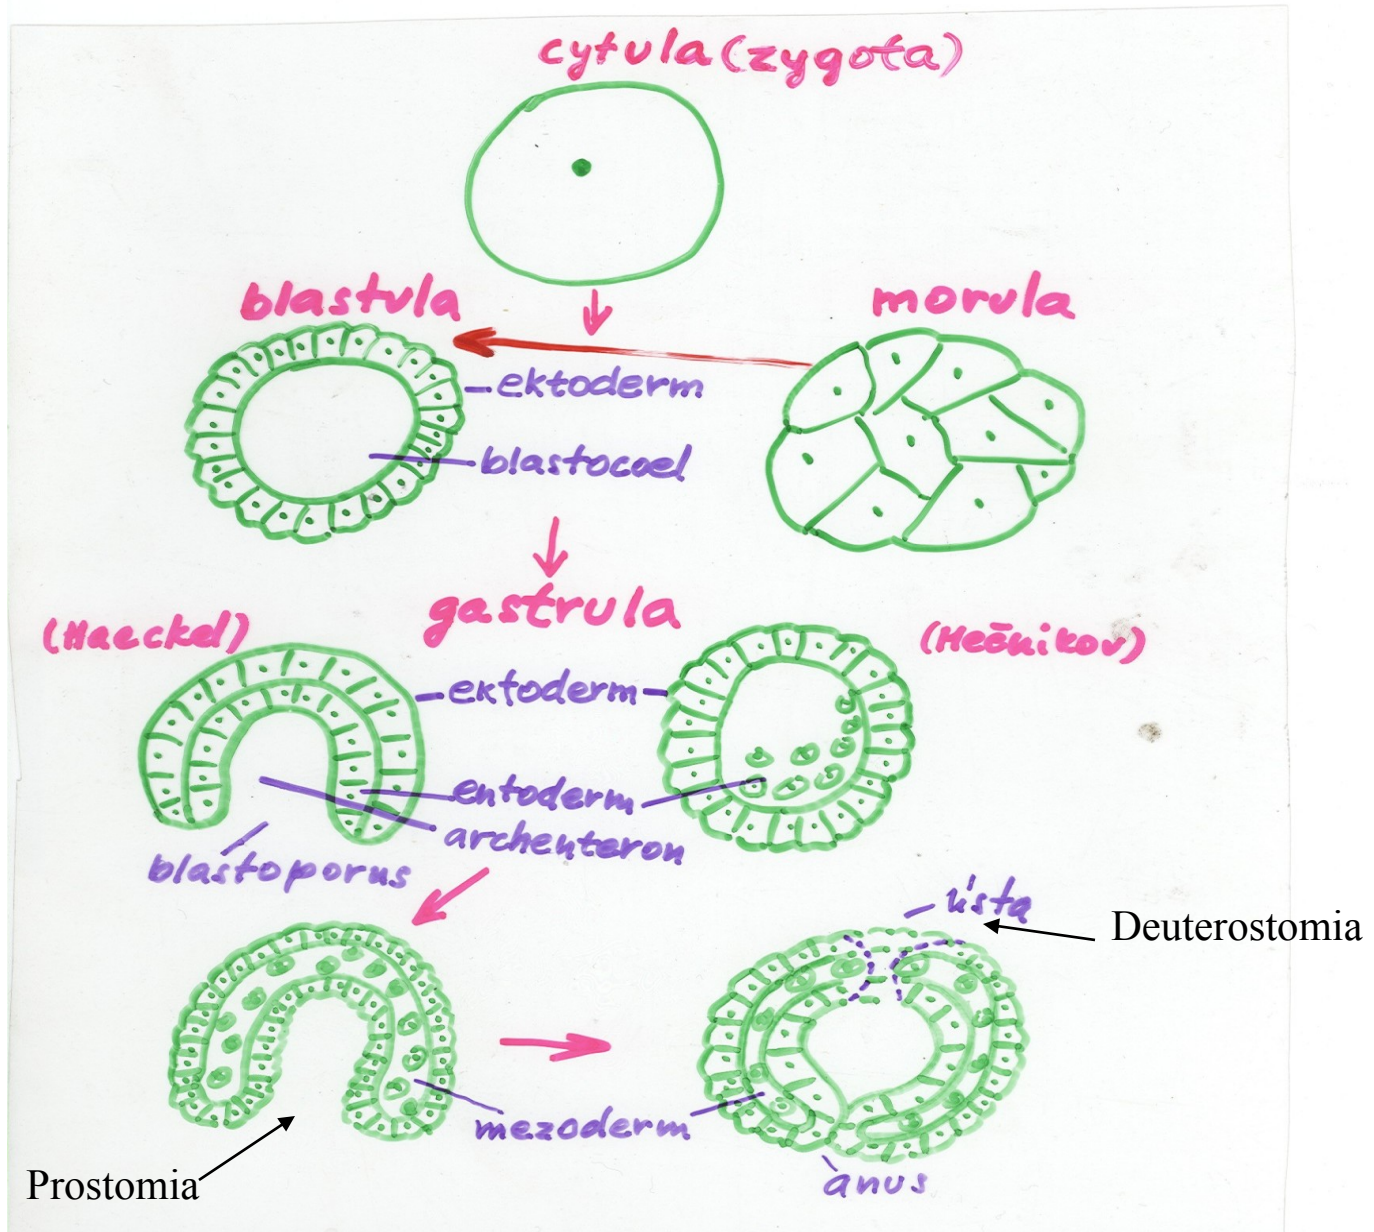 cytula (zygota)
blastula
morula
ektoderm
blastocoel
gastrula
(Haeckel)
(Mečnikov)
ektoderm
entoderm
archenteron
blastoporus
ústa
Deuterostomia
mezoderm
Prostomia
anus